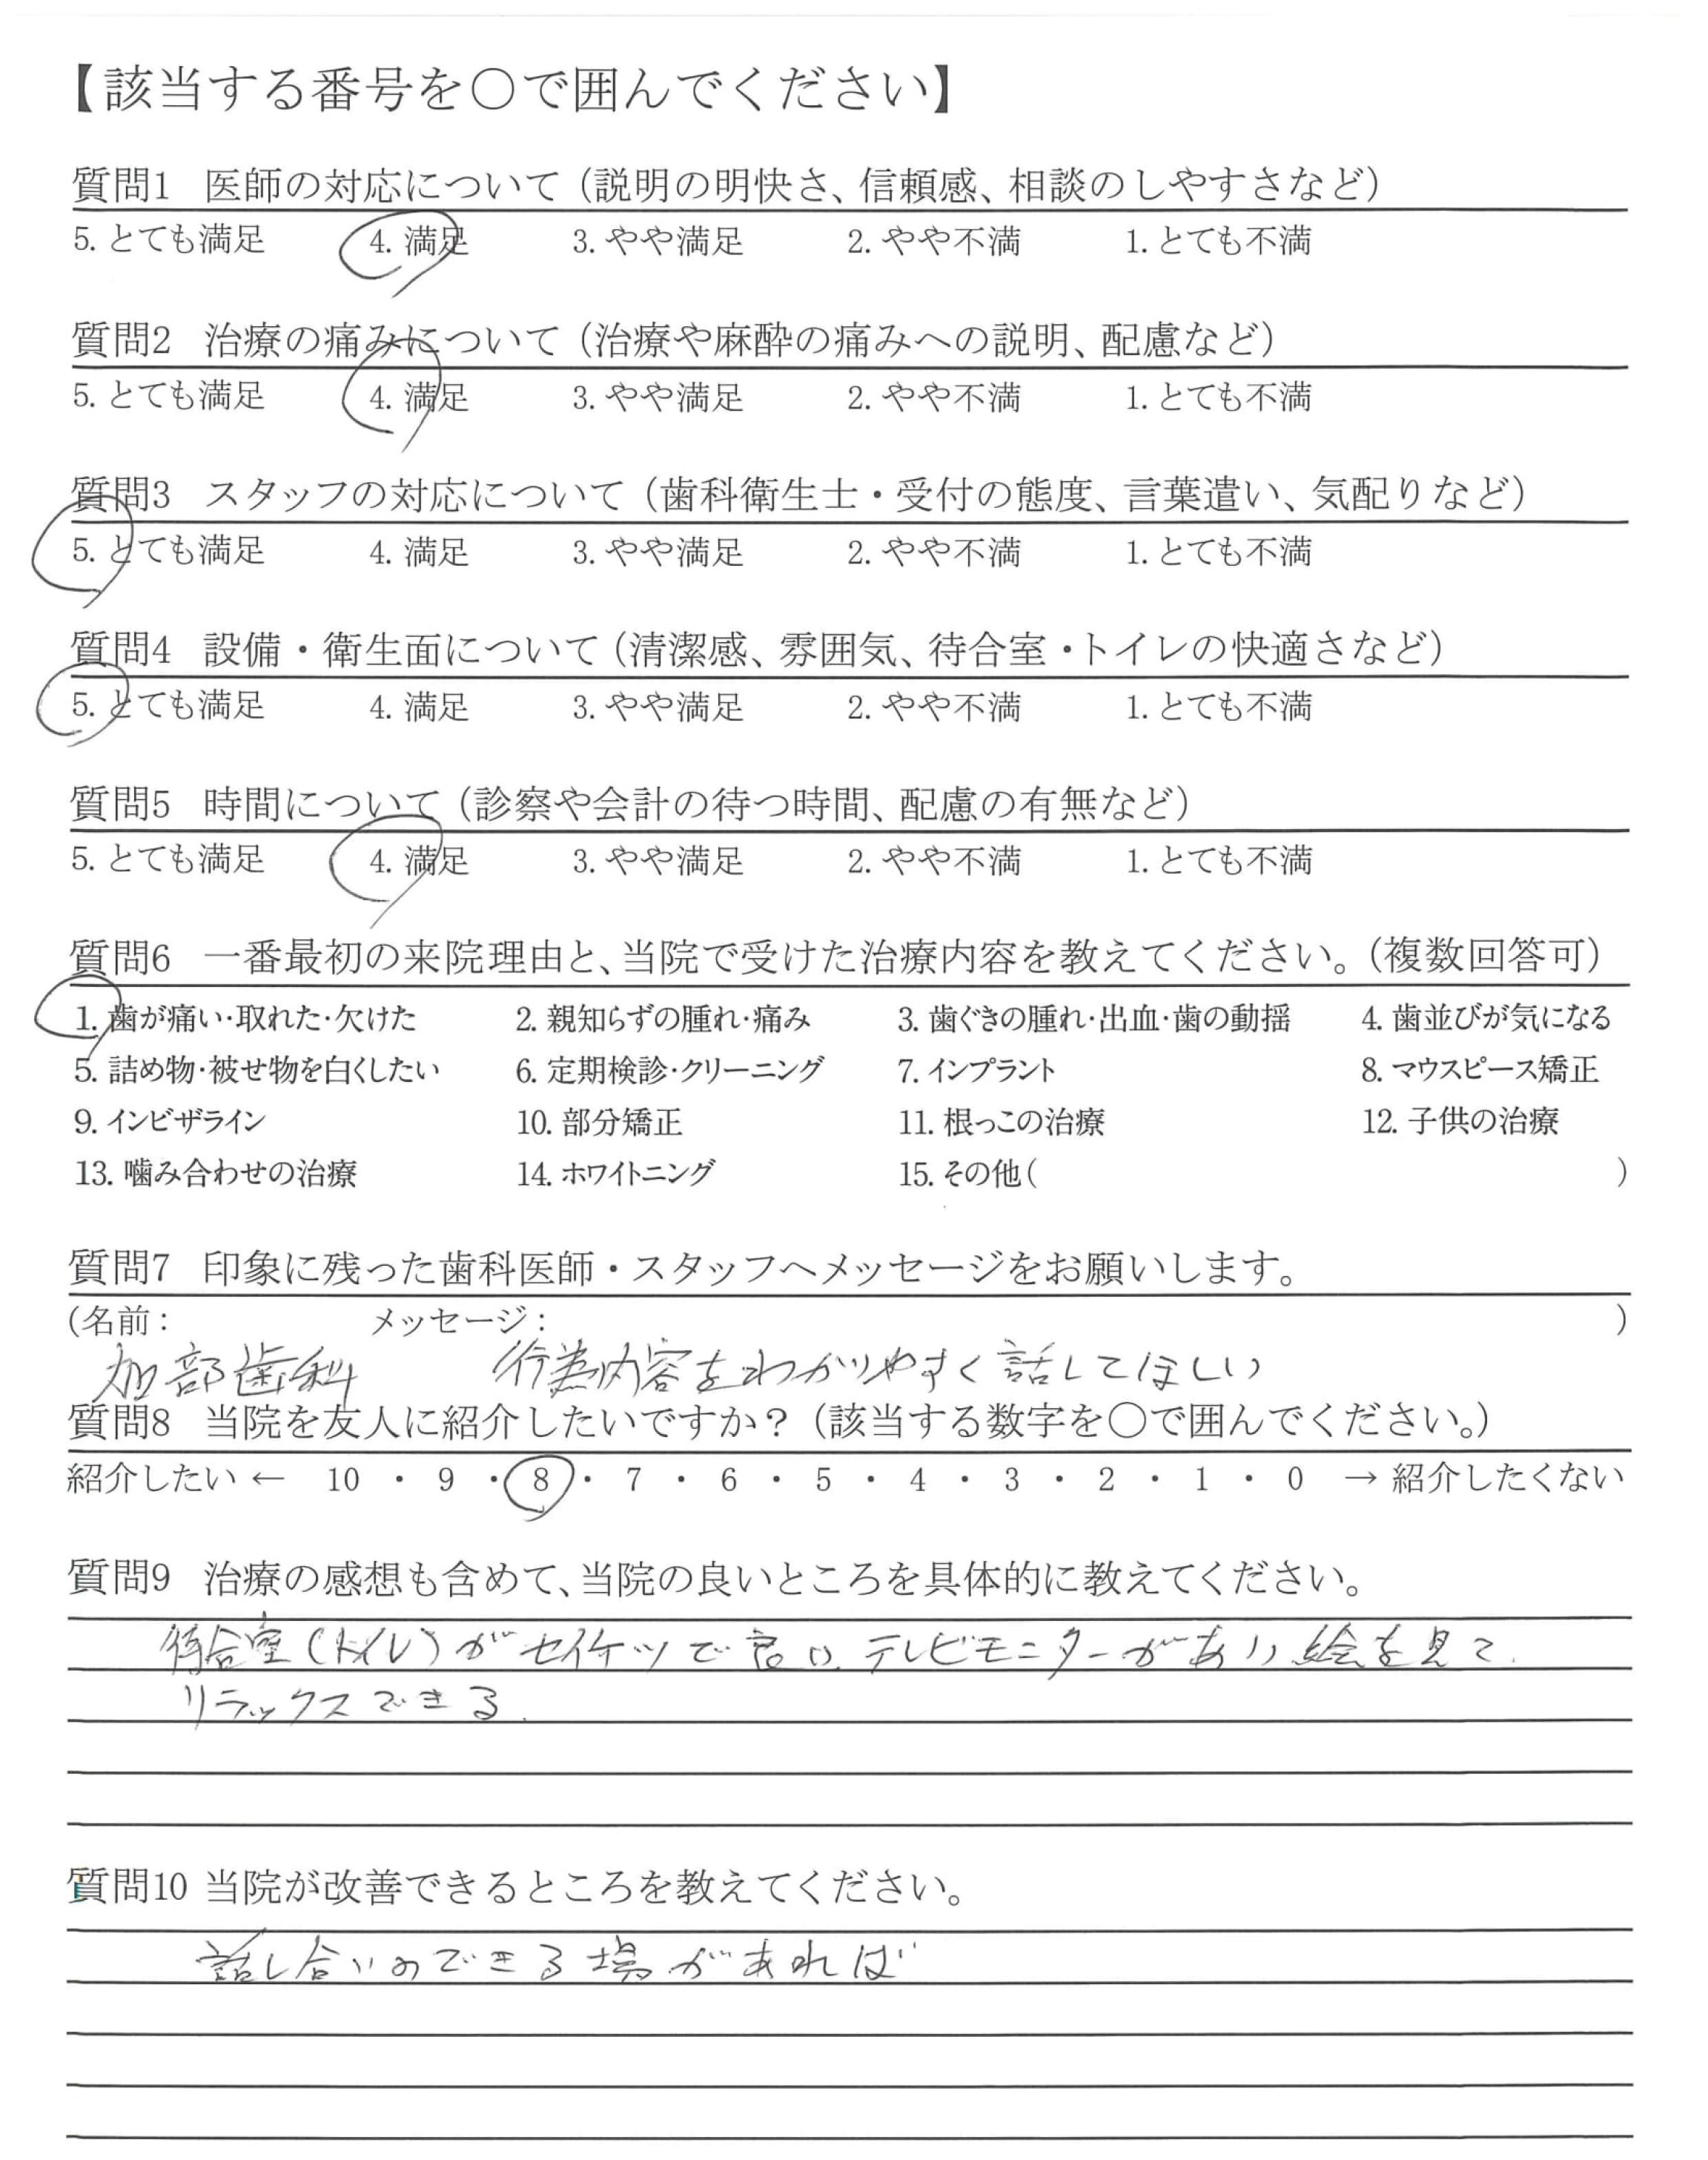 【該当する番号を〇で囲んでください】
質問1 医師の対応について（説明の明快さ、信頼感、相談のしやすさなど）
5. とても満足 4. 満足 3. やや満足 2. やや不満 1. とても不満
質問2 治療の痛みについて（治療や麻酔の痛みへの説明、配慮など）
5. とても満足 4. 満足 3. やや満足 2. やや不満 1. とても不満
質問3 スタッフの対応について（歯科衛生士・受付の態度、言葉遣い、気配りなど）
5. とても満足 4. 満足 3. やや満足 2. やや不満 1. とても不満
質問4 設備・衛生面について（清潔感、雰囲気、待合室・トイレの快適さなど）
5. とても満足 4. 満足 3. やや満足 2. やや不満 1. とても不満
質問5 時間について（診察や会計の待つ時間、配慮の有無など）
5. とても満足 4. 満足 3. やや満足 2. やや不満 1. とても不満
質問6 一番最初の来院理由と、当院で受けた治療内容を教えてください。（複数回答可）
1. 歯が痛い・取れた・欠けた 2. 親知らずの腫れ・痛み 3. 歯ぐきの腫れ・出血・歯の動揺 4. 歯並びが気になる
5. 詰め物・被せ物を白くしたい 6. 定期検診・クリーニング 7. インプラント 8. マウスピース矯正
9. インビザライン 10. 部分矯正 11. 根っこの治療 12. 子供の治療
13. 噛み合わせの治療 14. ホワイトニング 15. その他（ ）
質問7 印象に残った歯科医師・スタッフへメッセージをお願いします。
（名前： メッセージ： ）
加部歯科 行為内容をわかりやすく話してほしい
質問8 当院を友人に紹介したいですか？（該当する数字を〇で囲んでください。）
紹介したい ← 10 ・ 9 ・ 8 ・ 7 ・ 6 ・ 5 ・ 4 ・ 3 ・ 2 ・ 1 ・ 0 → 紹介したくない
質問9 治療の感想も含めて、当院の良いところを具体的に教えてください。
待合室（トイレ）がセイケツで良い。テレビモニターがあり絵を見て
リラックスできる。
質問10 当院が改善できるところを教えてください。
話し合いのできる場があれば